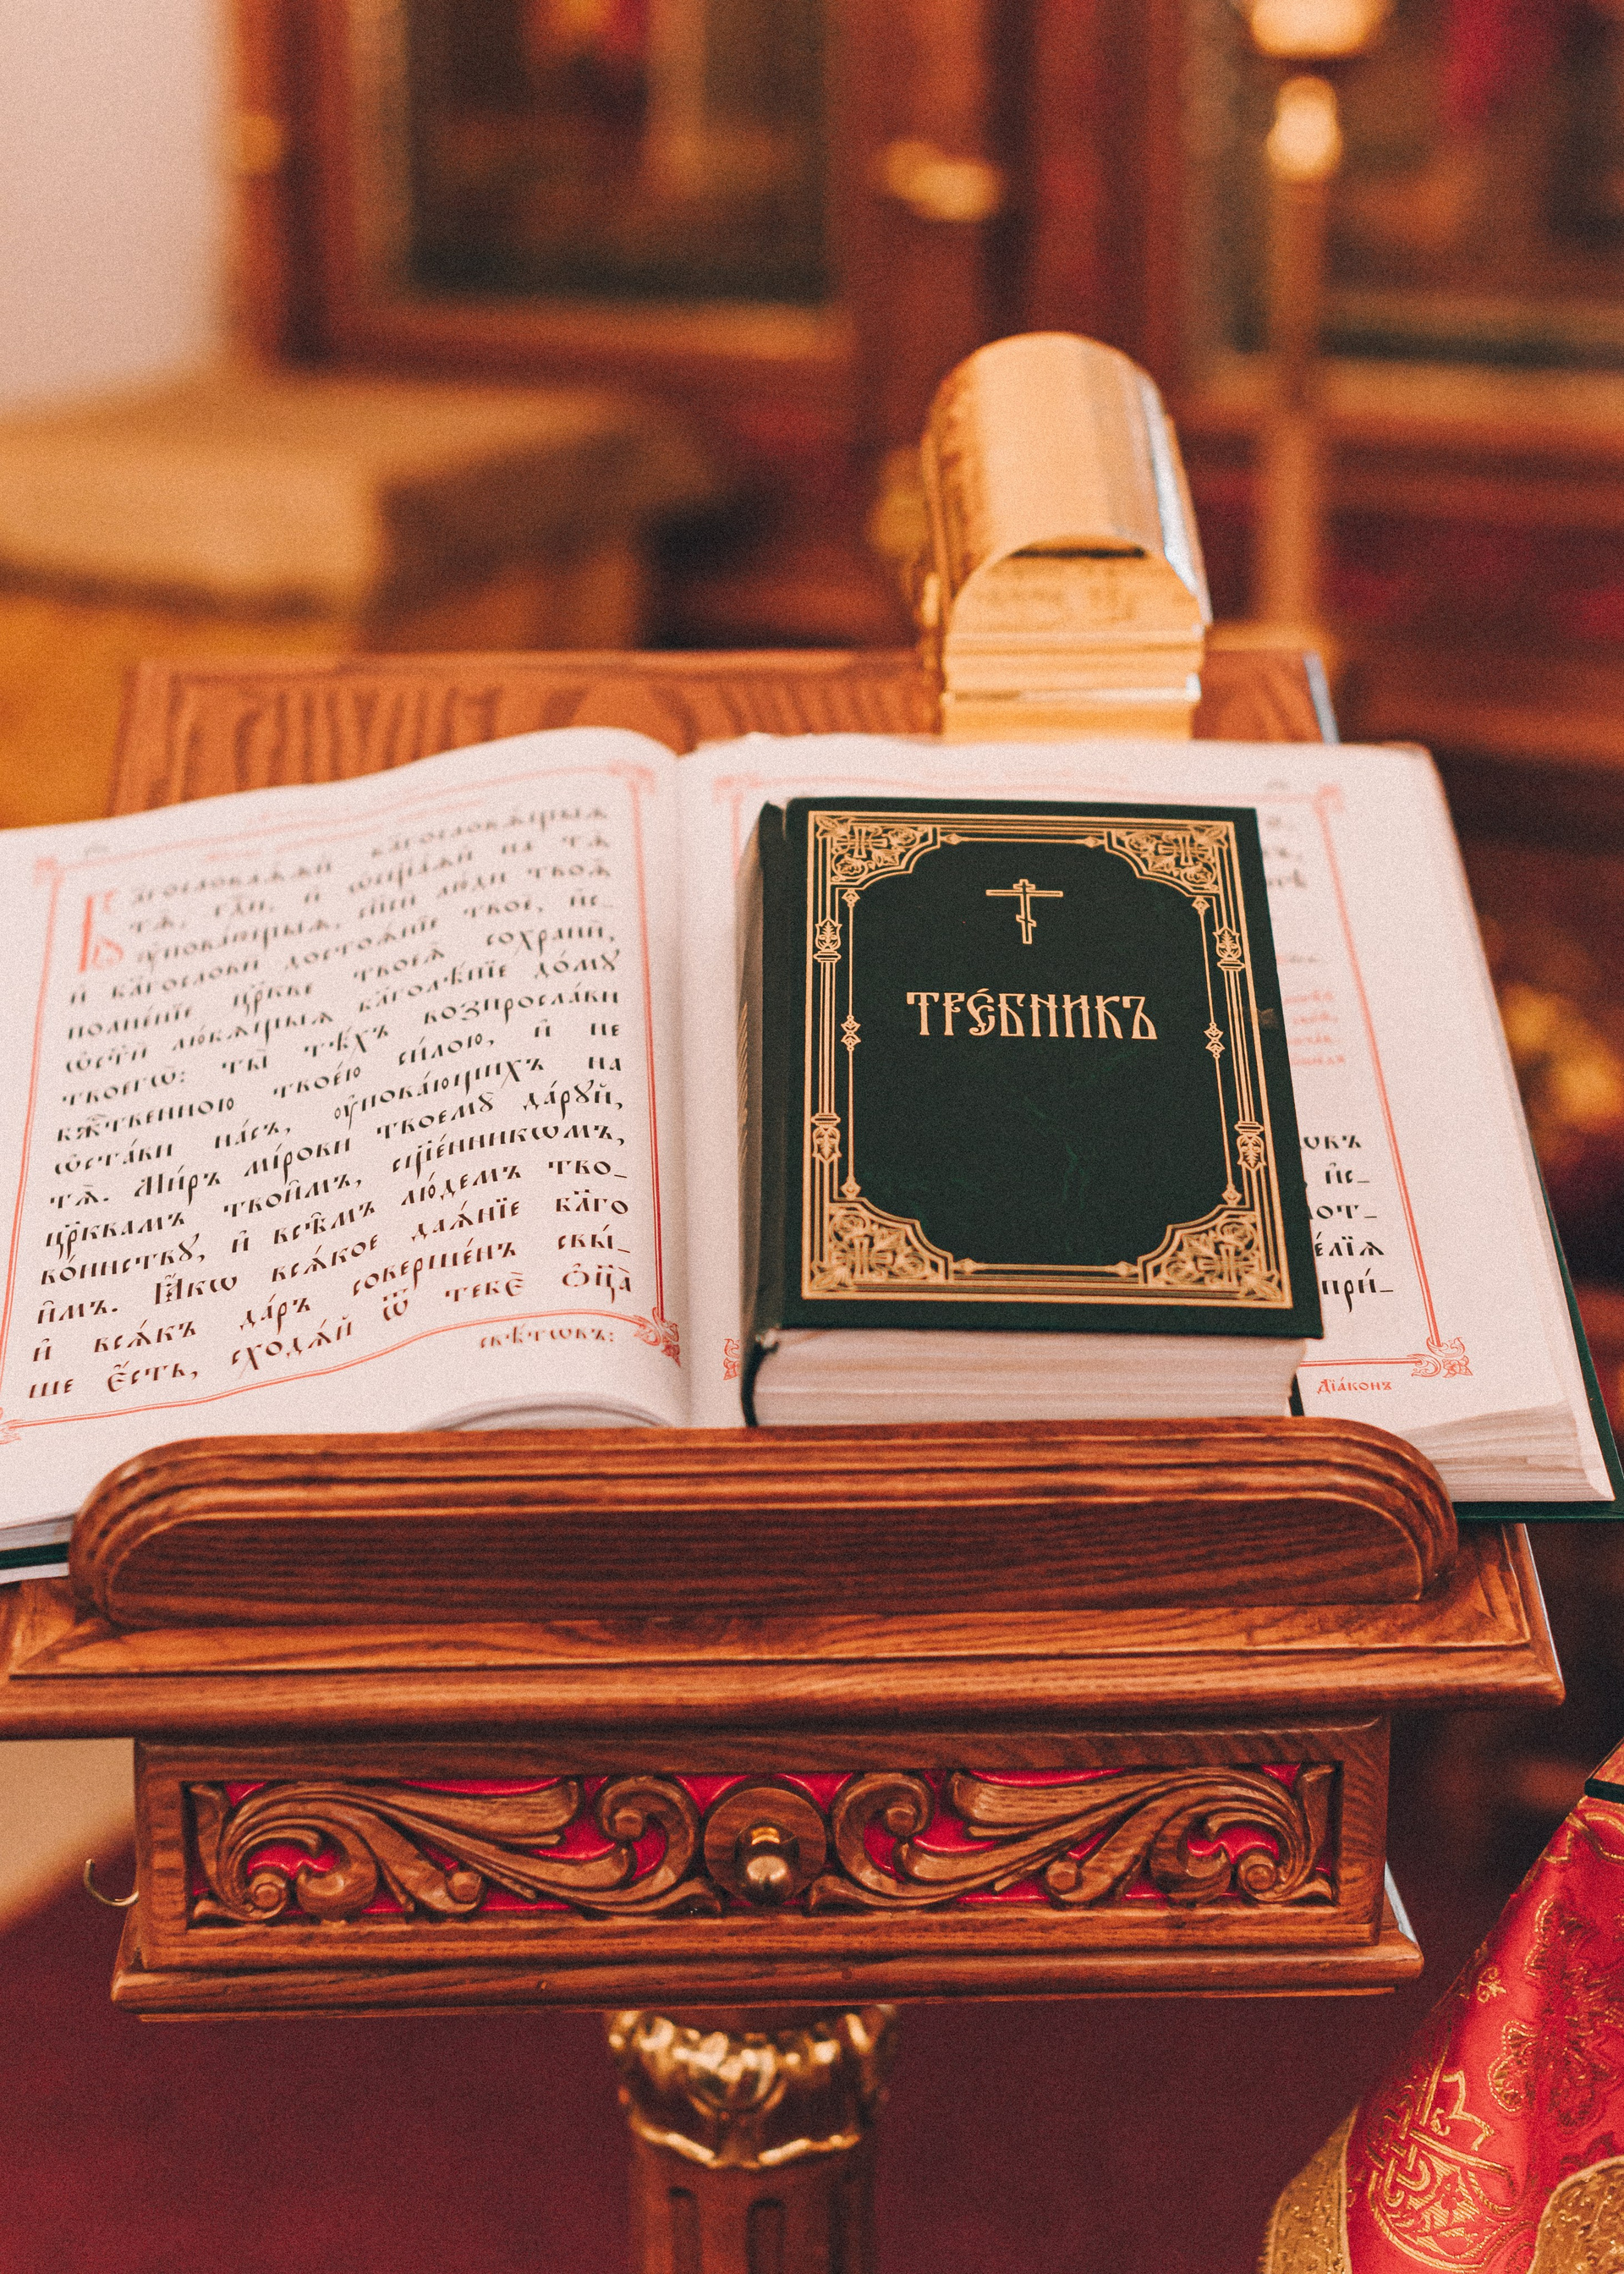 Бл҃гословлѧ́ѧй бл҃гословѧ́щыѧ
тѧ̀, гдⷭ҇и, и҆ ѡ҆сщ҃а́ѧй на тѧ̀
ᲂу҆пова́ющыѧ, сп҃сѝ лю́ди твоѧ̑
и҆ бл҃гословѝ достоѧ́нїе твоѐ, и҆с_
полне́нїе цр҃кве твоеѧ̀ сохранѝ,
ѡ҆ст҃ѝ лю́бѧщыѧ бл҃голѣ́пїе до́мꙋ
твоегѡ̀: ты̀ тѣ́хъ возпросла́ви
бжⷭ҇твенною твое́ю си́лою, и҆ не
ѡ҆ста́ви на́съ, ᲂу҆пова́ющихъ на
тѧ̀. Ми́ръ мі́рови твоемꙋ̀ да́рꙋй,
цр҃квамъ твои̑мъ, сщ҃е́нникѡмъ,
во́инствꙋ, и҆ всѣ̑мъ лю́демъ тво_
и̑мъ. Ꙗ҆́кѡ всѧ́кое даѧ́нїе бл҃го
и҆ всѧ́къ да́ръ соверше́нъ свы́_
ше є҆́сть, сходѧ́й ѿ тебє̀ ѻ҆ц҃а̀
свѣ́тѡвъ:
ТРЕ́БНИКЪ
Дїа́конъ